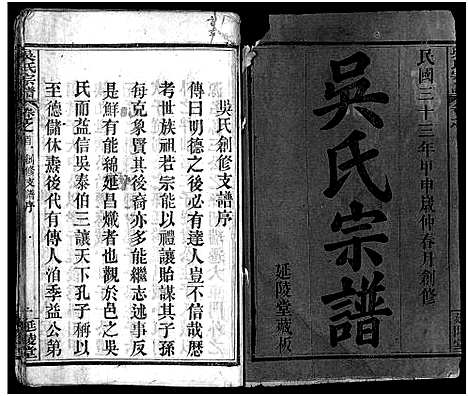 民國三十三年甲申歲仲春月創修
吳氏宗譜
延陵堂藏板
吳氏創修支譜序
傳曰明德之後必有達人豈不信哉歷
考世族祖若宗能以禮讓胎謀其子孫
每克象賢其後裔亦多能繼志述事反
是鮮有能綿延昌熾者也觀於邑之吳
氏而益信吳泰伯三讓天下孔子稱以
至德儲休燾後代有傳人洎季益公第
吳氏宗譜 卷之首 創修支譜序 一 延陵堂